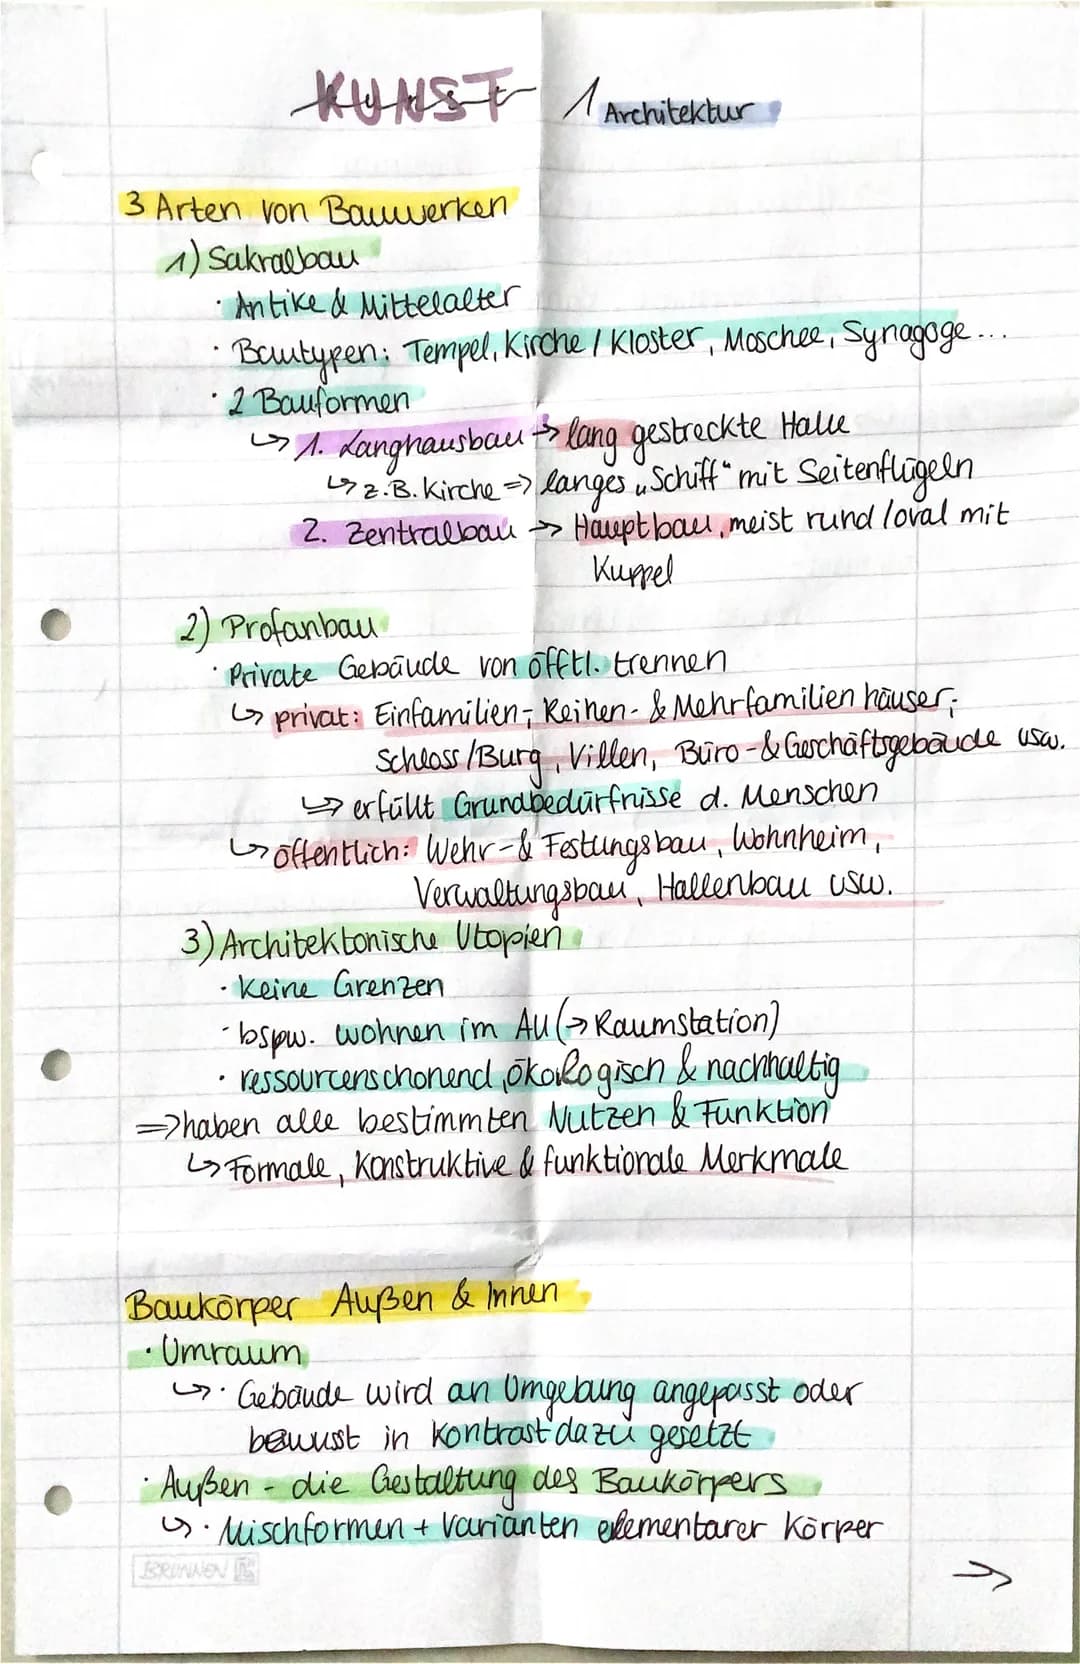 KUNST 1 Architektur
3 Arten von Bauwerken
1) Sakralbau
· Antike & Mittelalter
· Bautypen: Tempel, Kirche / Kloster, Moschee, Synagoge...
· 2 Bauformen
↳ 1. Langhausbau → lang gestreckte Halle
↳ z.B. Kirche => langes „Schiff“ mit Seitenflügeln
2. Zentralbau → Hauptbau, meist rund / oval mit
Kuppel
2) Profanbau
· Private Gebäude von öfftl. trennen
↳ privat: Einfamilien-, Reihen- & Mehrfamilienhäuser,
Schloss/Burg, Villen, Büro-& Geschäftsgebäude usw.
↳ erfüllt Grundbedürfnisse d. Menschen
↳ öffentlich: Wehr-& Festungsbau, Wohnheim,
Verwaltungsbau, Hallenbau usw.
3) Architektonische Utopien
· keine Grenzen
· bspw. wohnen im All (→ Raumstation)
· ressourcenschonend, ökologisch & nachhaltig
=> haben alle bestimmten Nutzen & Funktion
↳ Formale, Konstruktive & funktionale Merkmale
Baukörper Außen & Innen
· Umraum
↳ · Gebäude wird an Umgebung angepasst oder
bewusst in Kontrast dazu gesetzt
· Außen - die Gestaltung des Baukörpers
↳ · Mischformen + Varianten elementarer Körper
BRUNNEN
→